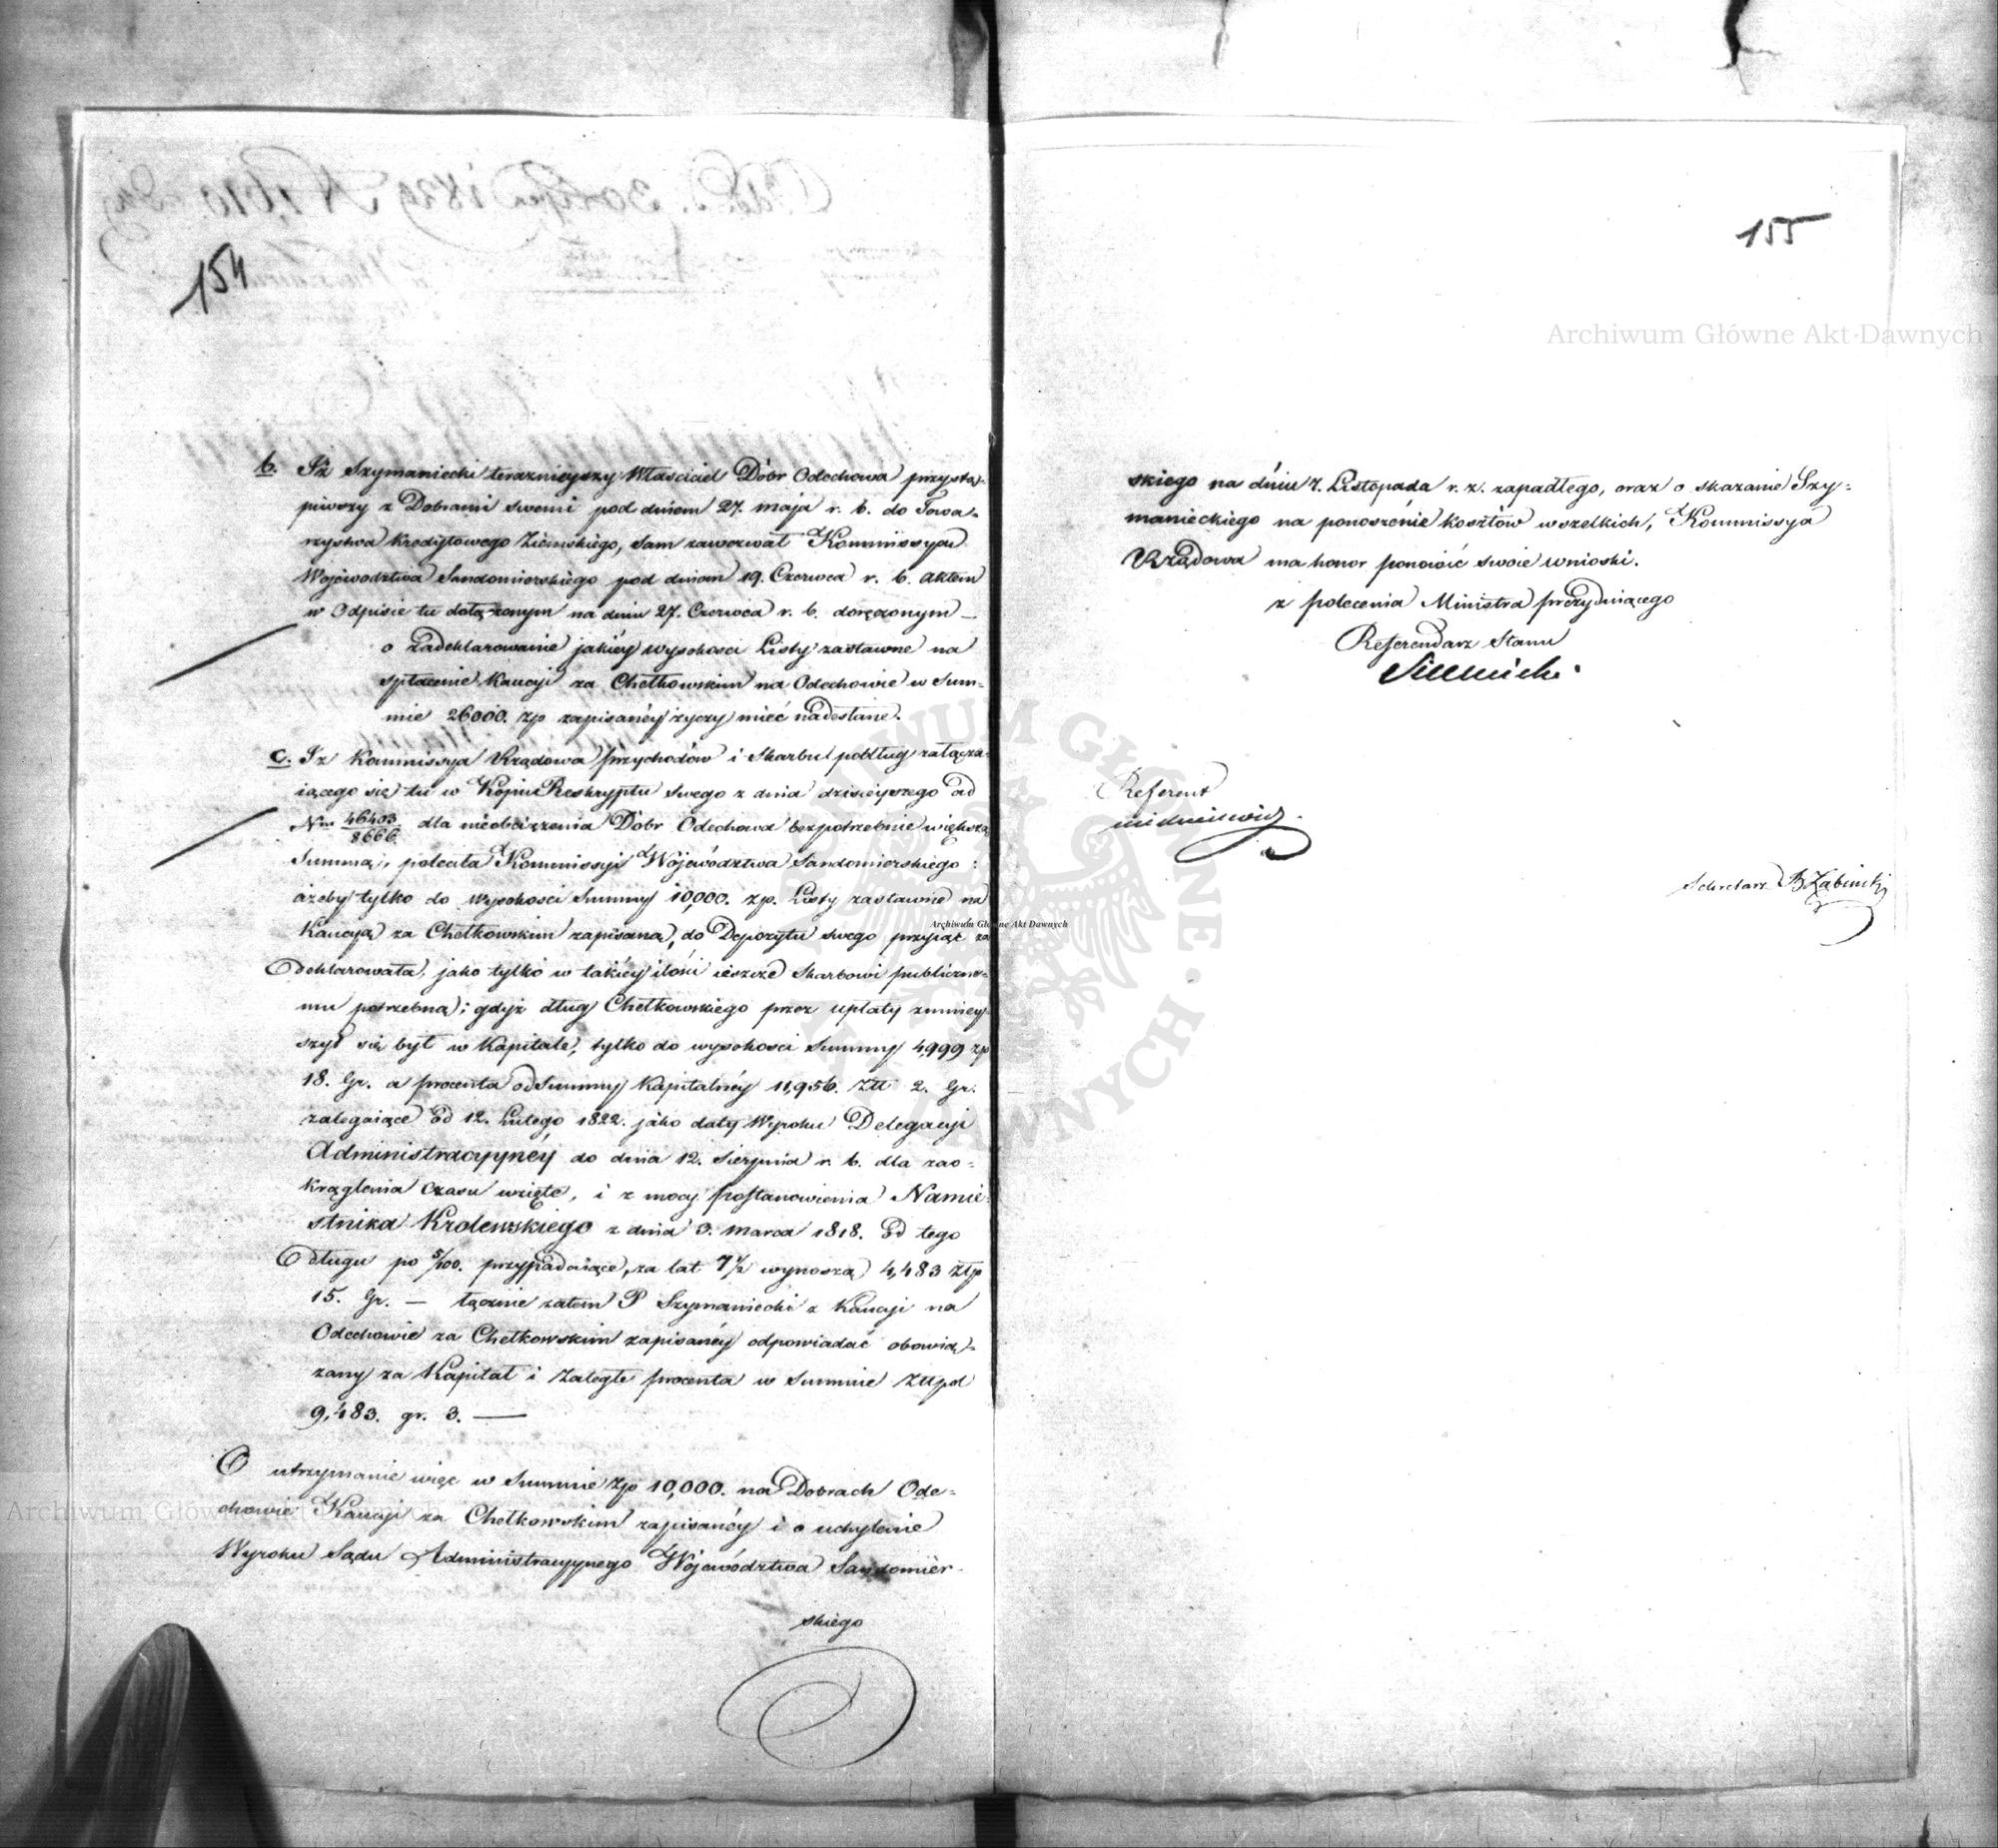 154
b. Iż Szymaniecki teraznieyszy Właściciel Dóbr Odechowa przystą-
piwszy z Dobrami swemi pod dniem 27. maja r. b. do Towa-
rzystwa Kredytowego Ziemskiego, sam zawezwał Kommissyą
Województwa Sandomierskiego pod dniem 19. Czerwca r. b. aktem
w Odpisie tu dołączonym na dniu 27. Czerwca r. b. doręczonym —
o zadeklarowanie jakiéy wysokosci Listy zastawne na
spłacenie Kaucyi za Chełkowskim na Odechowie w Sum-
mie 26000. zp zapisanéy życzy mieć nadesłane.
c. Iż Kommissya Rządowa przychodów i Skarbu podług załącza-
iącego się tu w Kopii Reskryptu swego z dnia dzisieyszego ad
Nrm 46403/8666 dla nieobciążenia Dóbr Odechowa bezpotrzebnie większą
Summą, poleciła Kommissyi Województwa Sandomierskiego:
ażeby tylko do wysokosci Summy 10,000. zp. Listy zastawne na
Kaucyą za Chełkowskim zapisaną, do Depozytu swego przyiąć za
deklarowała, jako tylko w takiéy ilości ieszcze Skarbowi publiczne-
mu potrzebną; gdyż dług Chełkowskiego przez upłaty zmniey-
szył się był w Kapitale, tylko do wysokosci Summy 4,999 zp
18. Gr. a procenta od Summy Kapitalnéy 11,956. Złł 2. Gr.
zalegaiące Od 12. Lutego 1822. jako daty Wyroku Delegacyi
Administracyyney do dnia 12. Sierpnia r. b. dla zao-
krąglenia Czasu wzięte, i z mocy postanowienia Namie-
stnika Krolewskiego z dnia 3. Marca 1818. Od tego
długu po 5/100. przypadaiące, za lat 7½ wynoszą 4,483 Złp
15. Gr. — łącznie zatem P Szymaniecki z Kaucyi na
Odechowie za Chełkowskim zapisanéy odpowiadać obowią-
zany za Kapitał i zaległe procenta w Summie Złłpol
9,483. gr. 3. —
O utrzymanie więc w Summie Zp 10,000. na Dobrach Ode-
chowie Kaucyi za Chełkowskim zapisanéy i o uchylenie
Wyroku Sądu Administracyynego Województwa Sandomier-
skiego
155
skiego na dniu 7. Listopada r. z. zapadłego, oraz o skazanie Szy-
manieckiego na ponoszenie kosztów wszelkich, Kommissya
Rządowa ma honor ponowić swoie wnioski.
z polecenia Ministra prezyduiącego
Referendarz Stanu
Referent
Sekretarz B Żabinski
Archiwum Główne Akt Dawnych